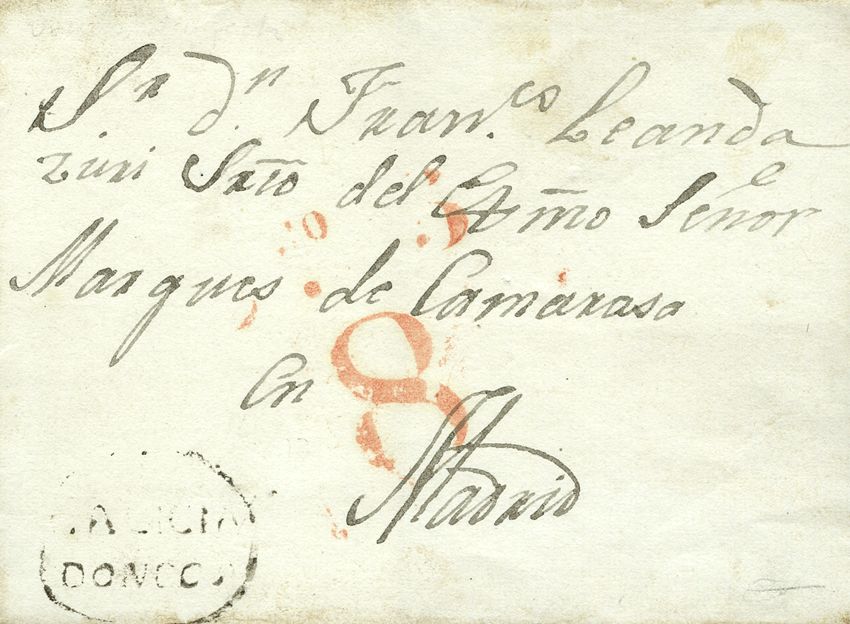 Sr dn Franco Leanda
zuri Srio del Exmo Señor
Marques de Camarasa
En
8
Madrid